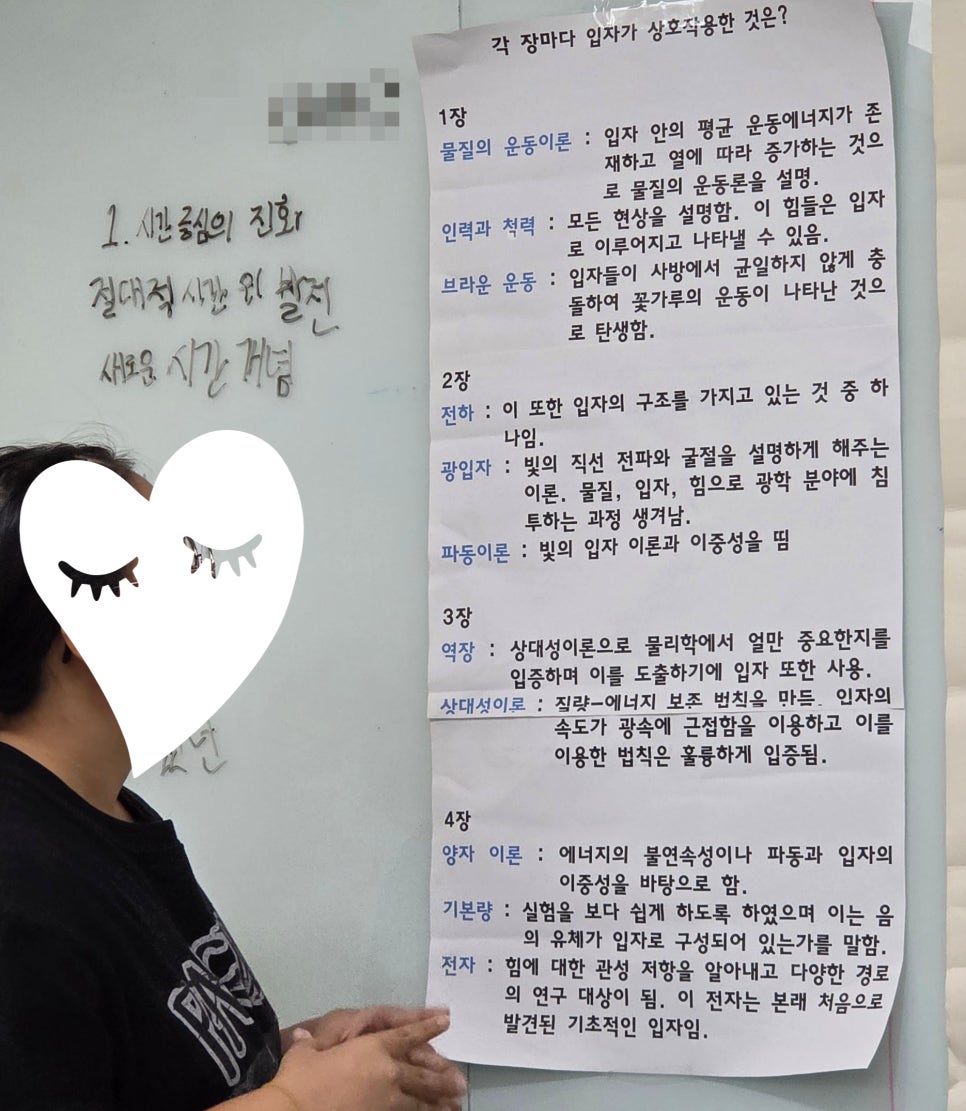 각 장마다 입자가 상호작용한 것은?
1장
물질의 운동이론 : 입자 안의 평균 운동에너지가 존
재하고 열에 따라 증가하는 것으
로 물질의 운동론을 설명.
인력과 척력 : 모든 현상을 설명함. 이 힘들은 입자
로 이루어지고 나타낼 수 있음.
브라운 운동 : 입자들이 사방에서 균일하지 않게 충
돌하여 꽃가루의 운동이 나타난 것으
로 탄생함.
2장
전하 : 이 또한 입자의 구조를 가지고 있는 것 중 하
나임.
광입자 : 빛의 직선 전파와 굴절을 설명하게 해주는
이론. 물질, 입자, 힘으로 광학 분야에 침
투하는 과정 생겨남.
파동이론 : 빛의 입자 이론과 이중성을 띰
3장
역장 : 상대성이론으로 물리학에서 얼만 중요한지를
입증하며 이를 도출하기에 입자 또한 사용.
상대성이론 : 질량-에너지 보존 법칙을 만듦. 입자의
속도가 광속에 근접함을 이용하고 이를
이용한 법칙은 훌륭하게 입증됨.
4장
양자 이론 : 에너지의 불연속성이나 파동과 입자의
이중성을 바탕으로 함.
기본량 : 실험을 보다 쉽게 하도록 하였으며 이는 음
의 유체가 입자로 구성되어 있는가를 말함.
전자 : 힘에 대한 관성 저항을 알아내고 다양한 경로
의 연구 대상이 됨. 이 전자는 본래 처음으로
발견된 기초적인 입자임.
1. 시간 중심의 진화
절대적 시간의 발전
새로운 시간 개념